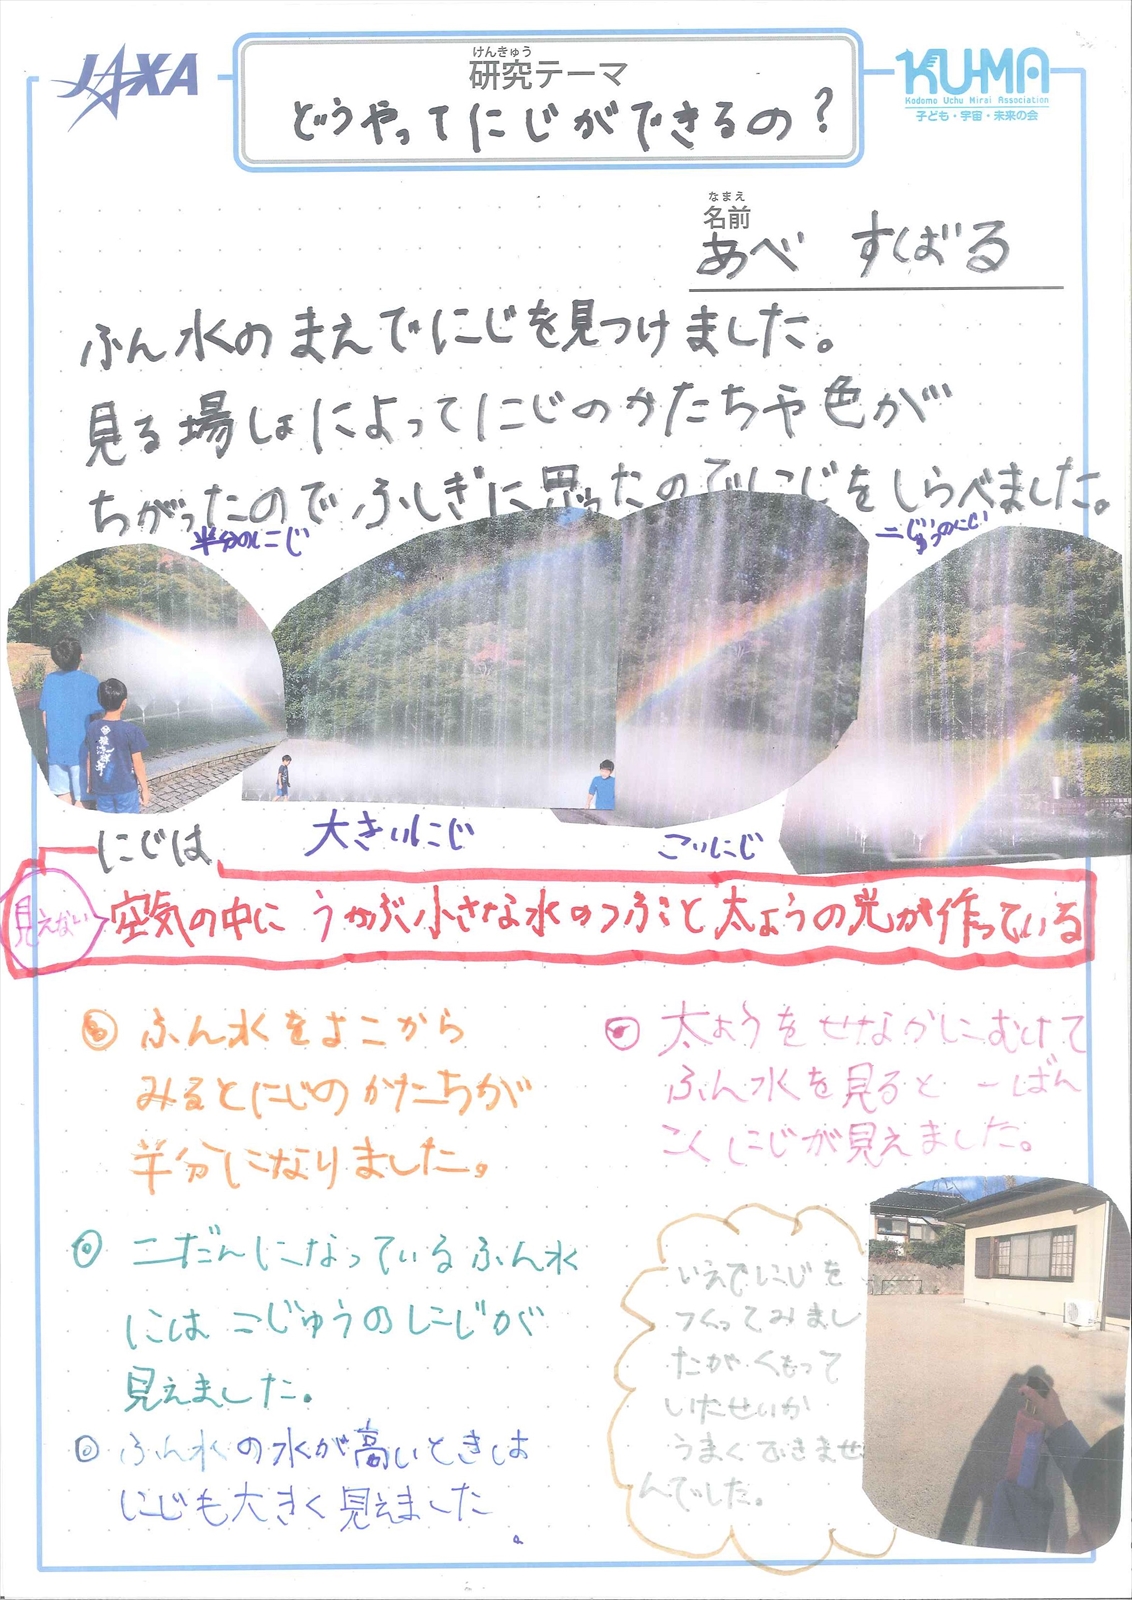 JAXA
けんきゅう
研究テーマ
どうやってにじができるの?
KU-MA
Kodomo Uchu Mirai Association
子ども・宇宙・未来の会
なまえ
名前
あべ すばる
ふん水のまえでにじを見つけました。
見る場しょによってにじのかたちや色が
ちがったのでふしぎに思ったのでにじをしらべました。
半分のにじ
二じゅうのにじ
大きいにじ
こいにじ
にじは
見えない
空気の中に うかぶ小さな水のつぶと太ようの光が作っている
ふん水をよこから
みるとにじのかたちが
半分になりました。
二だんになっているふん水
には二じゅうのにじが
見えました。
ふん水の水が高いときは
にじも大きく見えました。
太ようをせなかにむけて
ふん水を見ると一ばん
こくにじが見えました。
いえでにじを
つくってみまし
たがくもって
いたせいか
うまくできませ
んでした。